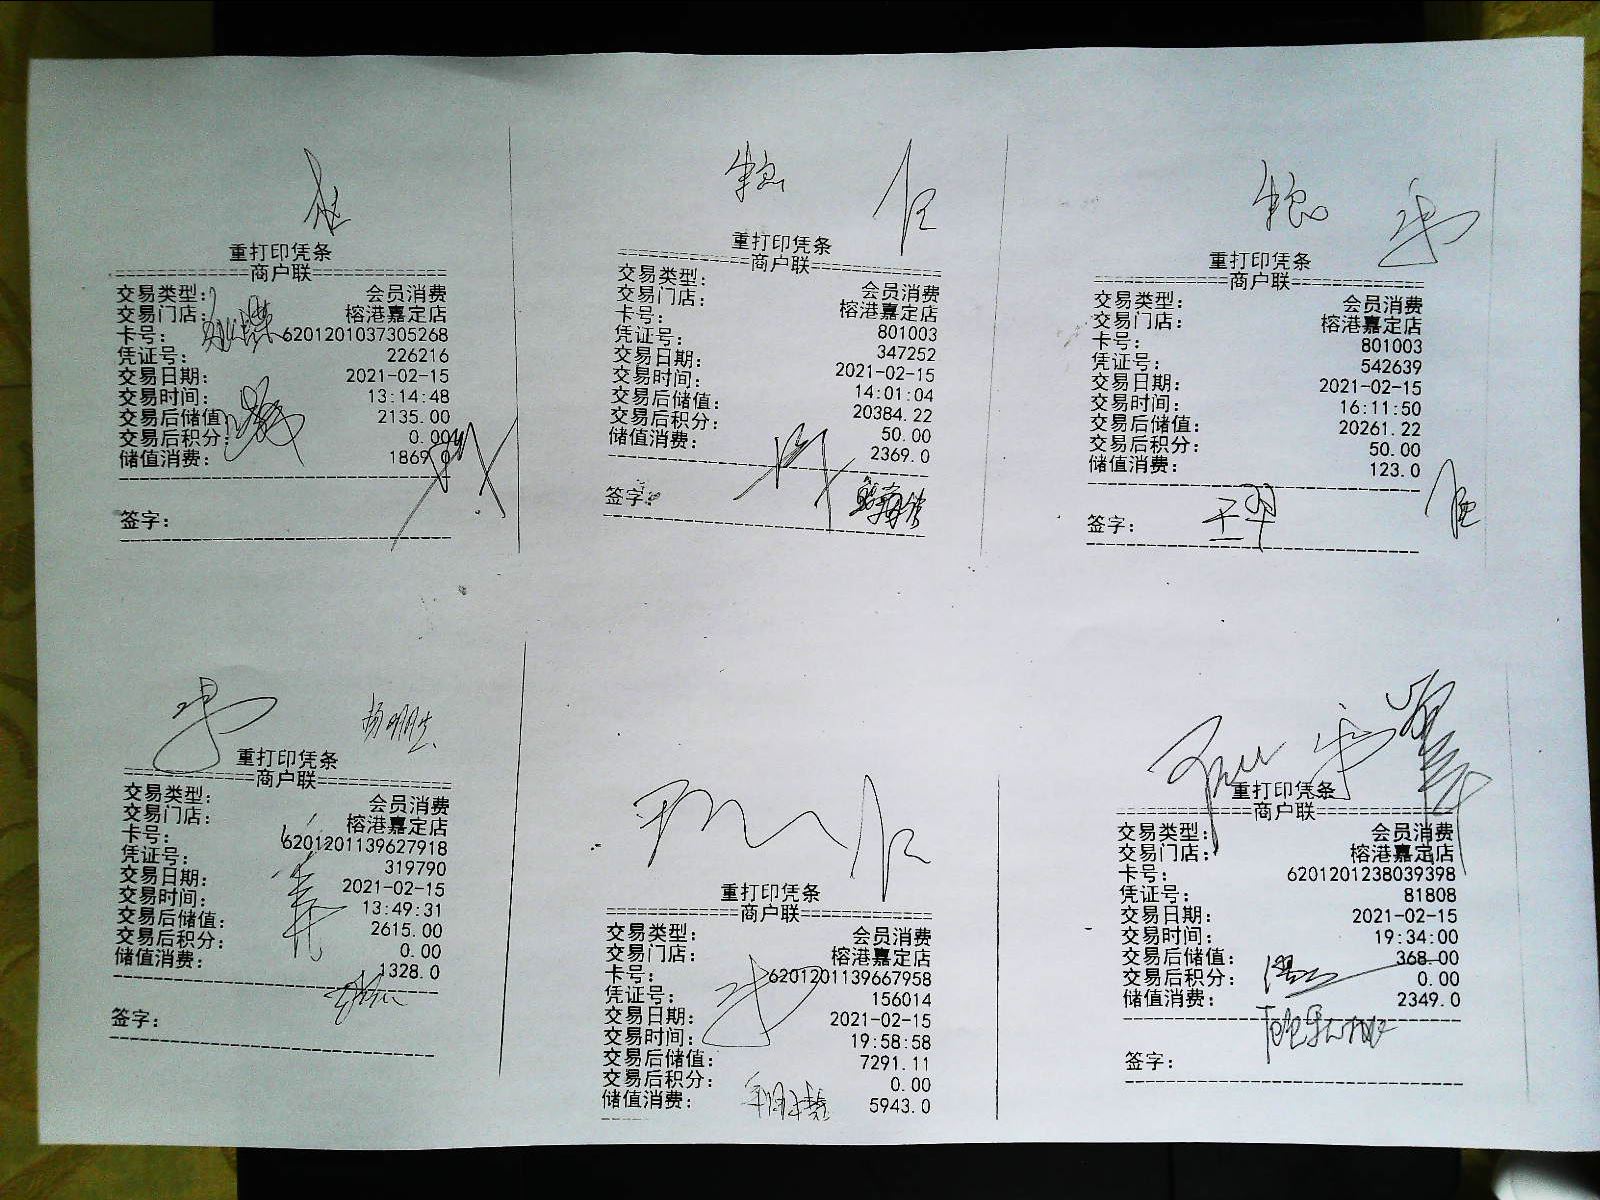 重打印凭条
================商户联================
交易类型: 会员消费
交易门店: 榕港嘉定店
卡号: 6201201037305268
凭证号: 226216
交易日期: 2021-02-15
交易时间: 13:14:48
交易后储值: 2135.00
交易后积分: 0.00
储值消费: 1869.0
签字:
重打印凭条
================商户联================
交易类型: 会员消费
交易门店: 榕港嘉定店
卡号: 801003
凭证号: 347252
交易日期: 2021-02-15
交易时间: 14:01:04
交易后储值: 20384.22
交易后积分: 50.00
储值消费: 2369.0
签字:
重打印凭条
================商户联================
交易类型: 会员消费
交易门店: 榕港嘉定店
卡号: 801003
凭证号: 542639
交易日期: 2021-02-15
交易时间: 16:11:50
交易后储值: 20261.22
交易后积分: 50.00
储值消费: 123.0
签字:
重打印凭条
================商户联================
交易类型: 会员消费
交易门店: 榕港嘉定店
卡号: 6201201139627918
凭证号: 319790
交易日期: 2021-02-15
交易时间: 13:49:31
交易后储值: 2615.00
交易后积分: 0.00
储值消费: 1328.0
签字:
重打印凭条
================商户联================
交易类型: 会员消费
交易门店: 榕港嘉定店
卡号: 6201201139667958
凭证号: 156014
交易日期: 2021-02-15
交易时间: 19:58:58
交易后储值: 7291.11
交易后积分: 0.00
储值消费: 5943.0
重打印凭条
================商户联================
交易类型: 会员消费
交易门店: 榕港嘉定店
卡号: 6201201238039398
凭证号: 81808
交易日期: 2021-02-15
交易时间: 19:34:00
交易后储值: 368.00
交易后积分: 0.00
储值消费: 2349.0
签字: